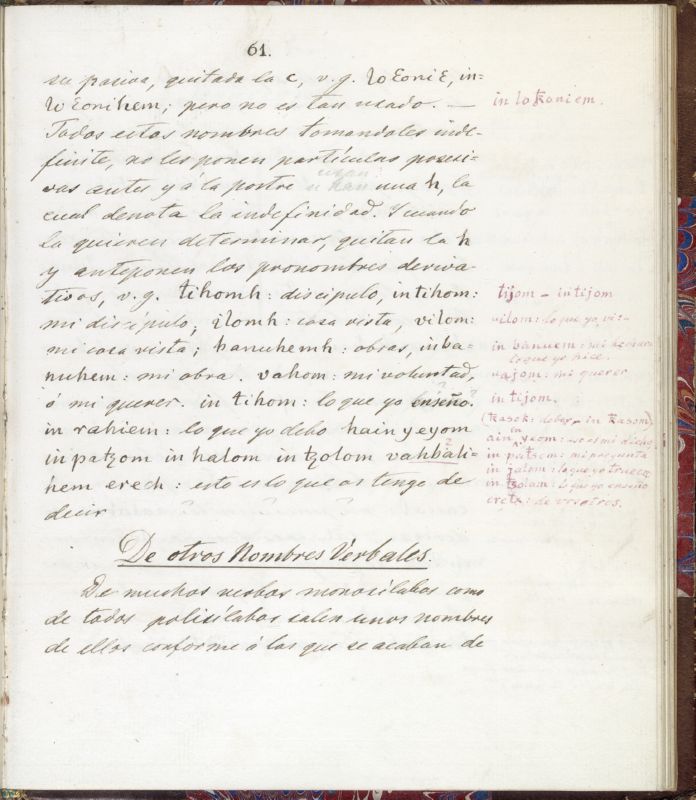 61.
su pasiva, quitada la c, v.g. loƐoniƐ, in=
loƐonihem; pero no es tan usado. —
in loꞣoniem.
Todos estos nombres tomandoles inde-
finite, no les ponen partículas posesi=
vas antes y á la postre usan una h, la
cual denota la indefinidad. Y cuando
la quieren determinar, quitan la h
y anteponen los pronombres deriva
tivos, v.g. tihomh: discipulo, intihom:
tijom - intijom
mi discípulo; ilomh: cosa vista, vilom:
vilom: lo que yo, vi=
mi cosa vista; banuhemh: obras, inba=
in banuem: mi
nuhem: mi obra. vahom: mi voluntad,
lo que yo hice.
vajom: mi querer
ó mi querer. in tihom: lo que yo enseño.
in tijom.
in rahiem: lo que yo debo hain y eyom
(ꞣasok: deber - in ꞣasom)
in patꜩom in halom in tꜩolom vahbali=
in patsem: mi pregunta
in jalom: lo que yo
hem erech: esto es lo que os tengo de
in tꜩolom: lo que yo enseño
decir
eretꜩ: de vosotros.
De otros Nombres Verbales.
De muchos verbos monosilabos como
de todos polisílabos salen unos nombres
de ellos conforme á las que se acaban de